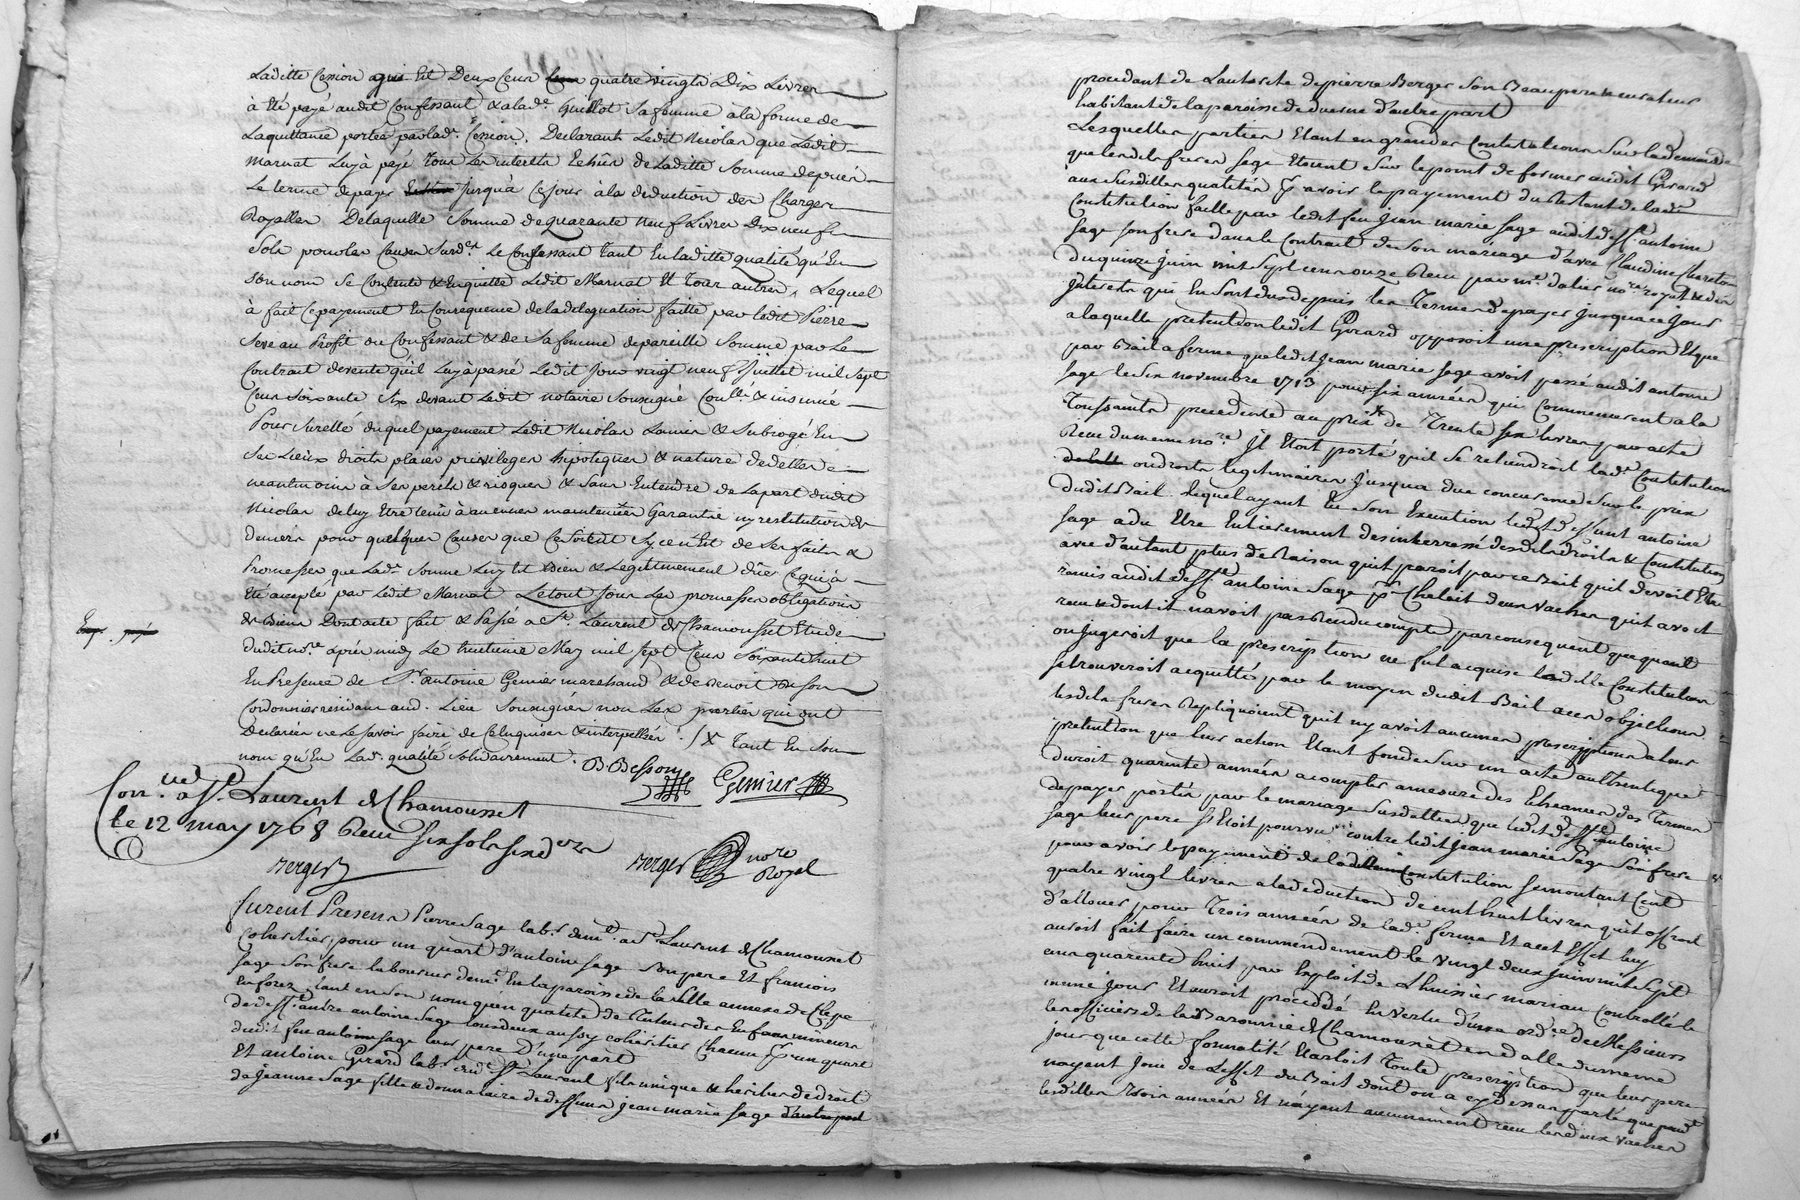 Laditte Cession qui Est Deux Cent quatre vingts Dix Livres
à Eté payé audit Confessant & alade Guillot Sa femme àla forme de
Laquittance portée parlad. Cession. Declarant Ledit Nicolas que Ledit
Marnat Luy à payé Tous Les interets Echûs de Laditte Somme depuis
Le terme depayer Jusqu'à Cejour àla deduction des Charges
Royalles Delaquelle Somme dequarante neuf Livres Dix neuf
Sols pour les Causes Surd. Le Confessant Tant En laditte qualité qu'En
son nom Se Contente & Enquitte Ledit Marnat Et Tous autres, Lequel
à fait Cepayement En Consequence de la delegation faitte par ledit Pierre
Seve au Profit du Confessant & de Sa femme depareille Somme par Le
Contrat devente qu'il Luy à passé Ledit Jour vingt neuf Juillet mil Sept
Cent Soixante Six devant Ledit notaire Soussigné Conllé & insinué
Pour Sureté duquel payement Ledit Nicolas Lamis & Subrogé En
Ses Lieux droits places privileges hipoteques & nature de dettes
neantmoins à Ses perils & risques & Sans Entendre de la part dudit
Nicolas deluy Etre tenu à aucunes maintenües Garantie ny restitution de
deniers pour quelques Causes que Ce Soit Sy ce n'Est de Ses faits &
Promesses que Lad. Somme Luy Est bien & Legitimement düe Ce qui à
Eté accepté par Ledit Marnat Letout Sous Les promesses obligations
de biens Dont acte fait & Passé a St. Laurent de Chamousset Etude
dudit nore après midy Le huitieme May mil Sept Cent Soixante huit
En Presence de Sr. antoine Gemier marchand & de Benoit Besson
Cordonnier residant aud. Lieu Soussignés non Les parties qui ont
Declarées ne le Savoir faire de Ce Enquises & interpellées / x Tant En Son
nom qu'En Lad. qualité Solidairement. B Besson Gemier
Con. a St. Laurent de Chamousset
le 12 may 1768 Reçu Six sols six d
Berger Berger nore Royal
furent Presens Pierre Sage labr. demt. a St. Laurent de Chamousset
Coheritier pour un quart d'antoine Sage Son pere Et francois
Sage Son frere laboureur demt. En la paroisse de la Ville annexe de Clepé
En forez, tant en Son nom qu'en qualité de Tuteur des Enfans mineurs
de defft. andré antoine Sage tous deux aussy coheritiers Chacun pr. un quart
dudit feu antoine Sage leur pere D'une part
Et antoine Girard labr. dud. St. Laurent fils unique & heritier de droit
de Jeanne Sage fille & donnataire de deffunt jean marie Sage d'autre part
procedant de Lautorité de pierre Berger Son Beaupere & curateur
habitant de la paroisse de duerne d'autre part
Lesquelles parties Etant en grandes Contestations Sur la demande
que lesdits freres Sage Etoient Sur le point de former audit Girard
aux Susdittes qualités pr avoir le payement du Restant de lade
Constitution faitte par ledit feu Jean marie Sage audit defft. antoine
Sage Son frere dans le Contrat de Son mariage d'avec Claudine Chareton
du quinze Juin mil Sept cent onze Recu par me. dalier nore. royal & des
Interets qui En Sont dus depuis les Termes de payer Jusqua ce Jour
a laquelle pretention ledit Girard opposoit une prescription Et que
par Bail a ferme que ledit Jean marie Sage avoit passé audit antoine
Sage le Six novembre 1713 pour Six années qui Commencerent a la
Toussaints precedente au prix de Trente Six livres par acte
Recu du meme nore. Il Etoit porté qu'il Se retiendroit lade Constitution
ou droits legitimaires Jusqua due concurance Sur le prix
dudit Bail. Lequel ayant Eu Son Execution ledit deffunt antoine
Sage a du Etre Entierement desinterressé desdits droits & Constitution
avec d'autant plus de Raison qu'il paroit par ce Bail qu'il devoit Etre
remis audit defft. antoine Sage pr. Chetail deux vaches qu'il avoit
recu & dont il n'avoit pas Rendu compte par consequent que quand
on Jugeroit que la prescription ne fut acquise laditte Constitution
Se trouveroit acquittée par le moyen dudit Bail a ces objections
lesdits freres Repliquoient qu'il ny avoit aucunes prescriptions a leur
pretention que leur action Etant fondée Sur un acte authentique
duroit quarente années a compter amesure des Echeances des Termes
de payer portés par le mariage Susdit & que ledit defft. antoine
Sage leur pere S'Etoit pourvu contre ledit Jean marie Sage Son frere
pour avoir le payement de lade Constitution Se montant Cent
quatre vingt livres a la deduction de cent huit livres qu'il offroit
d'allouer pour Trois années de lade ferme Et a cet Effet luy
auroit fait faire un commendement le vingt deux Juin mil Sept
cent quarente huit par Exploit de Lhuissier mariau Controllé le
meme Jour Et auroit procédé En vertu d'une ordce. de Messieurs
les officiers de la Baronnie de Chamousset en datte du meme
Jour que cette formalité Ecartoit Toute prescription que leur pere
n'ayant Joui de Leffet du Bail dont on a cy dessus parlé que pendt.
lesdittes Trois années Et n'ayant aucunement reçu les deux vaches